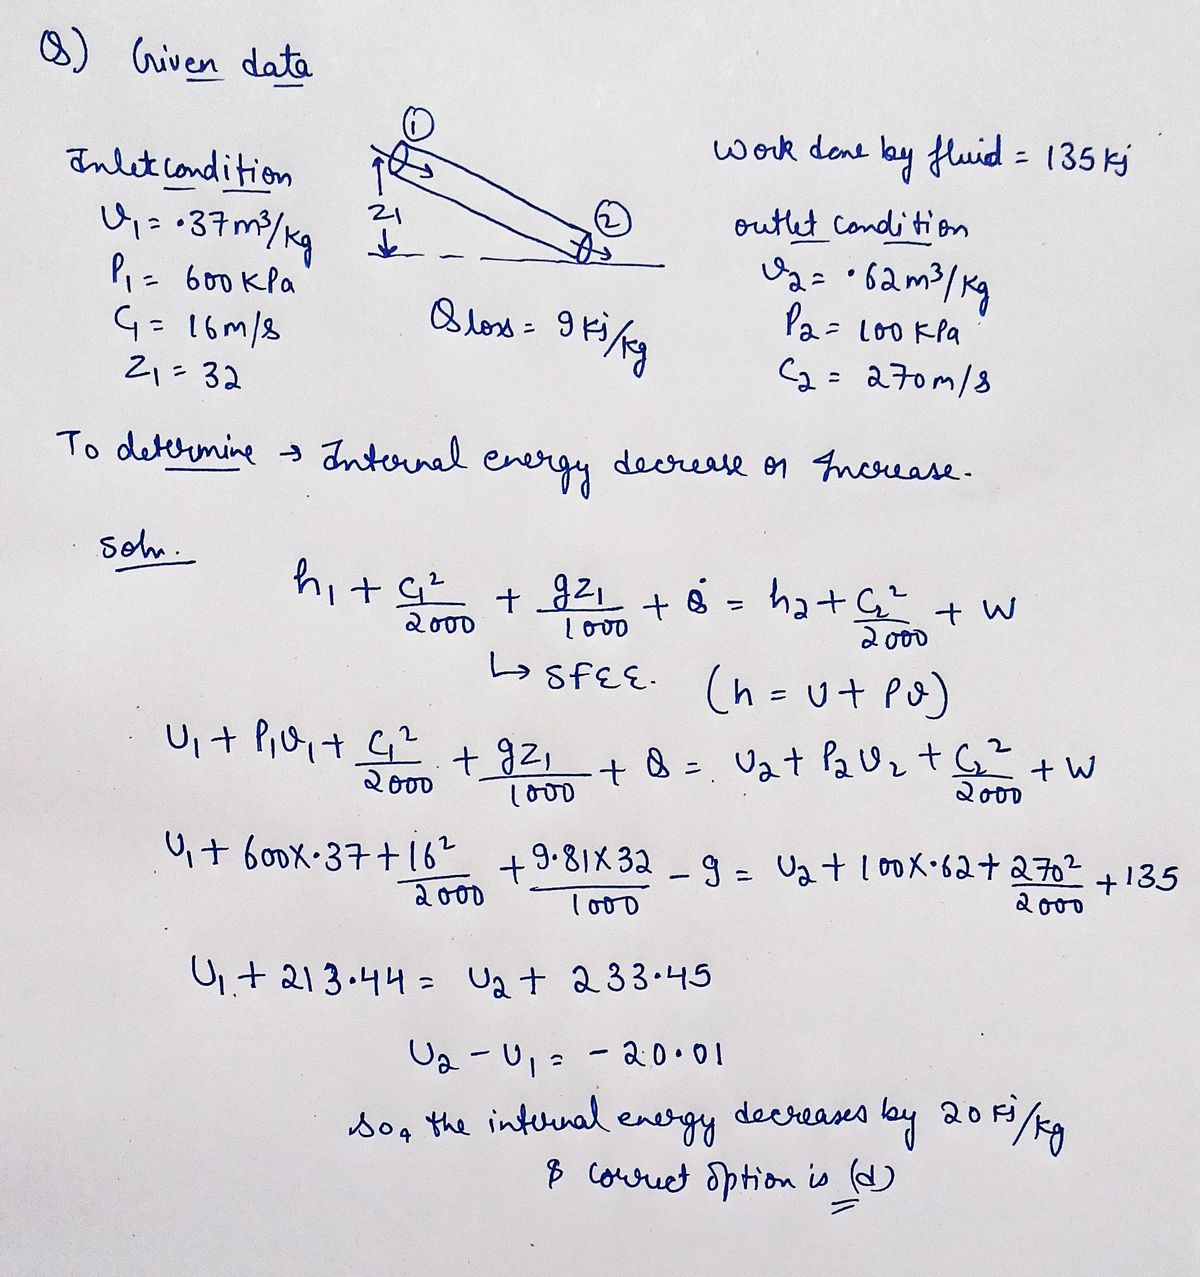 Q) Given data
①
Inlet condition
v₁ = .37 m³/kg
P₁ = 600 kPa
C₁ = 16 m/s
Z₁ = 32
Z₁
②
Q loss = 9 kj/kg
Work done by fluid = 135 kj
outlet condition
v₂ = .62 m³/kg
P₂ = 100 kPa
C₂ = 270 m/s
To determine → Internal energy decrease or Increase.
Soln.
h₁ + C₁²/2000 + gZ₁/1000 + Q̇ = h₂ + C₂²/2000 + W
↳ SFEE. (h = U + Pv)
U₁ + P₁v₁ + C₁²/2000 + gZ₁/1000 + Q = U₂ + P₂v₂ + C₂²/2000 + W
U₁ + 600X.37 + 16²/2000 + 9.81X32/1000 - 9 = U₂ + 100X.62 + 270²/2000 + 135
U₁ + 213.44 = U₂ + 233.45
U₂ - U₁ = - 20.01
so, the internal energy decreases by 20 kj/kg
& correct option is (d)